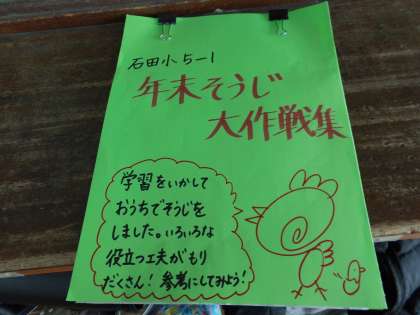 石田小5-1
年末そうじ
大作戦集
学習をいかして
おうちでそうじを
しました。いろいろな
役立つ工夫がもり
だくさん!参考にしてみよう!